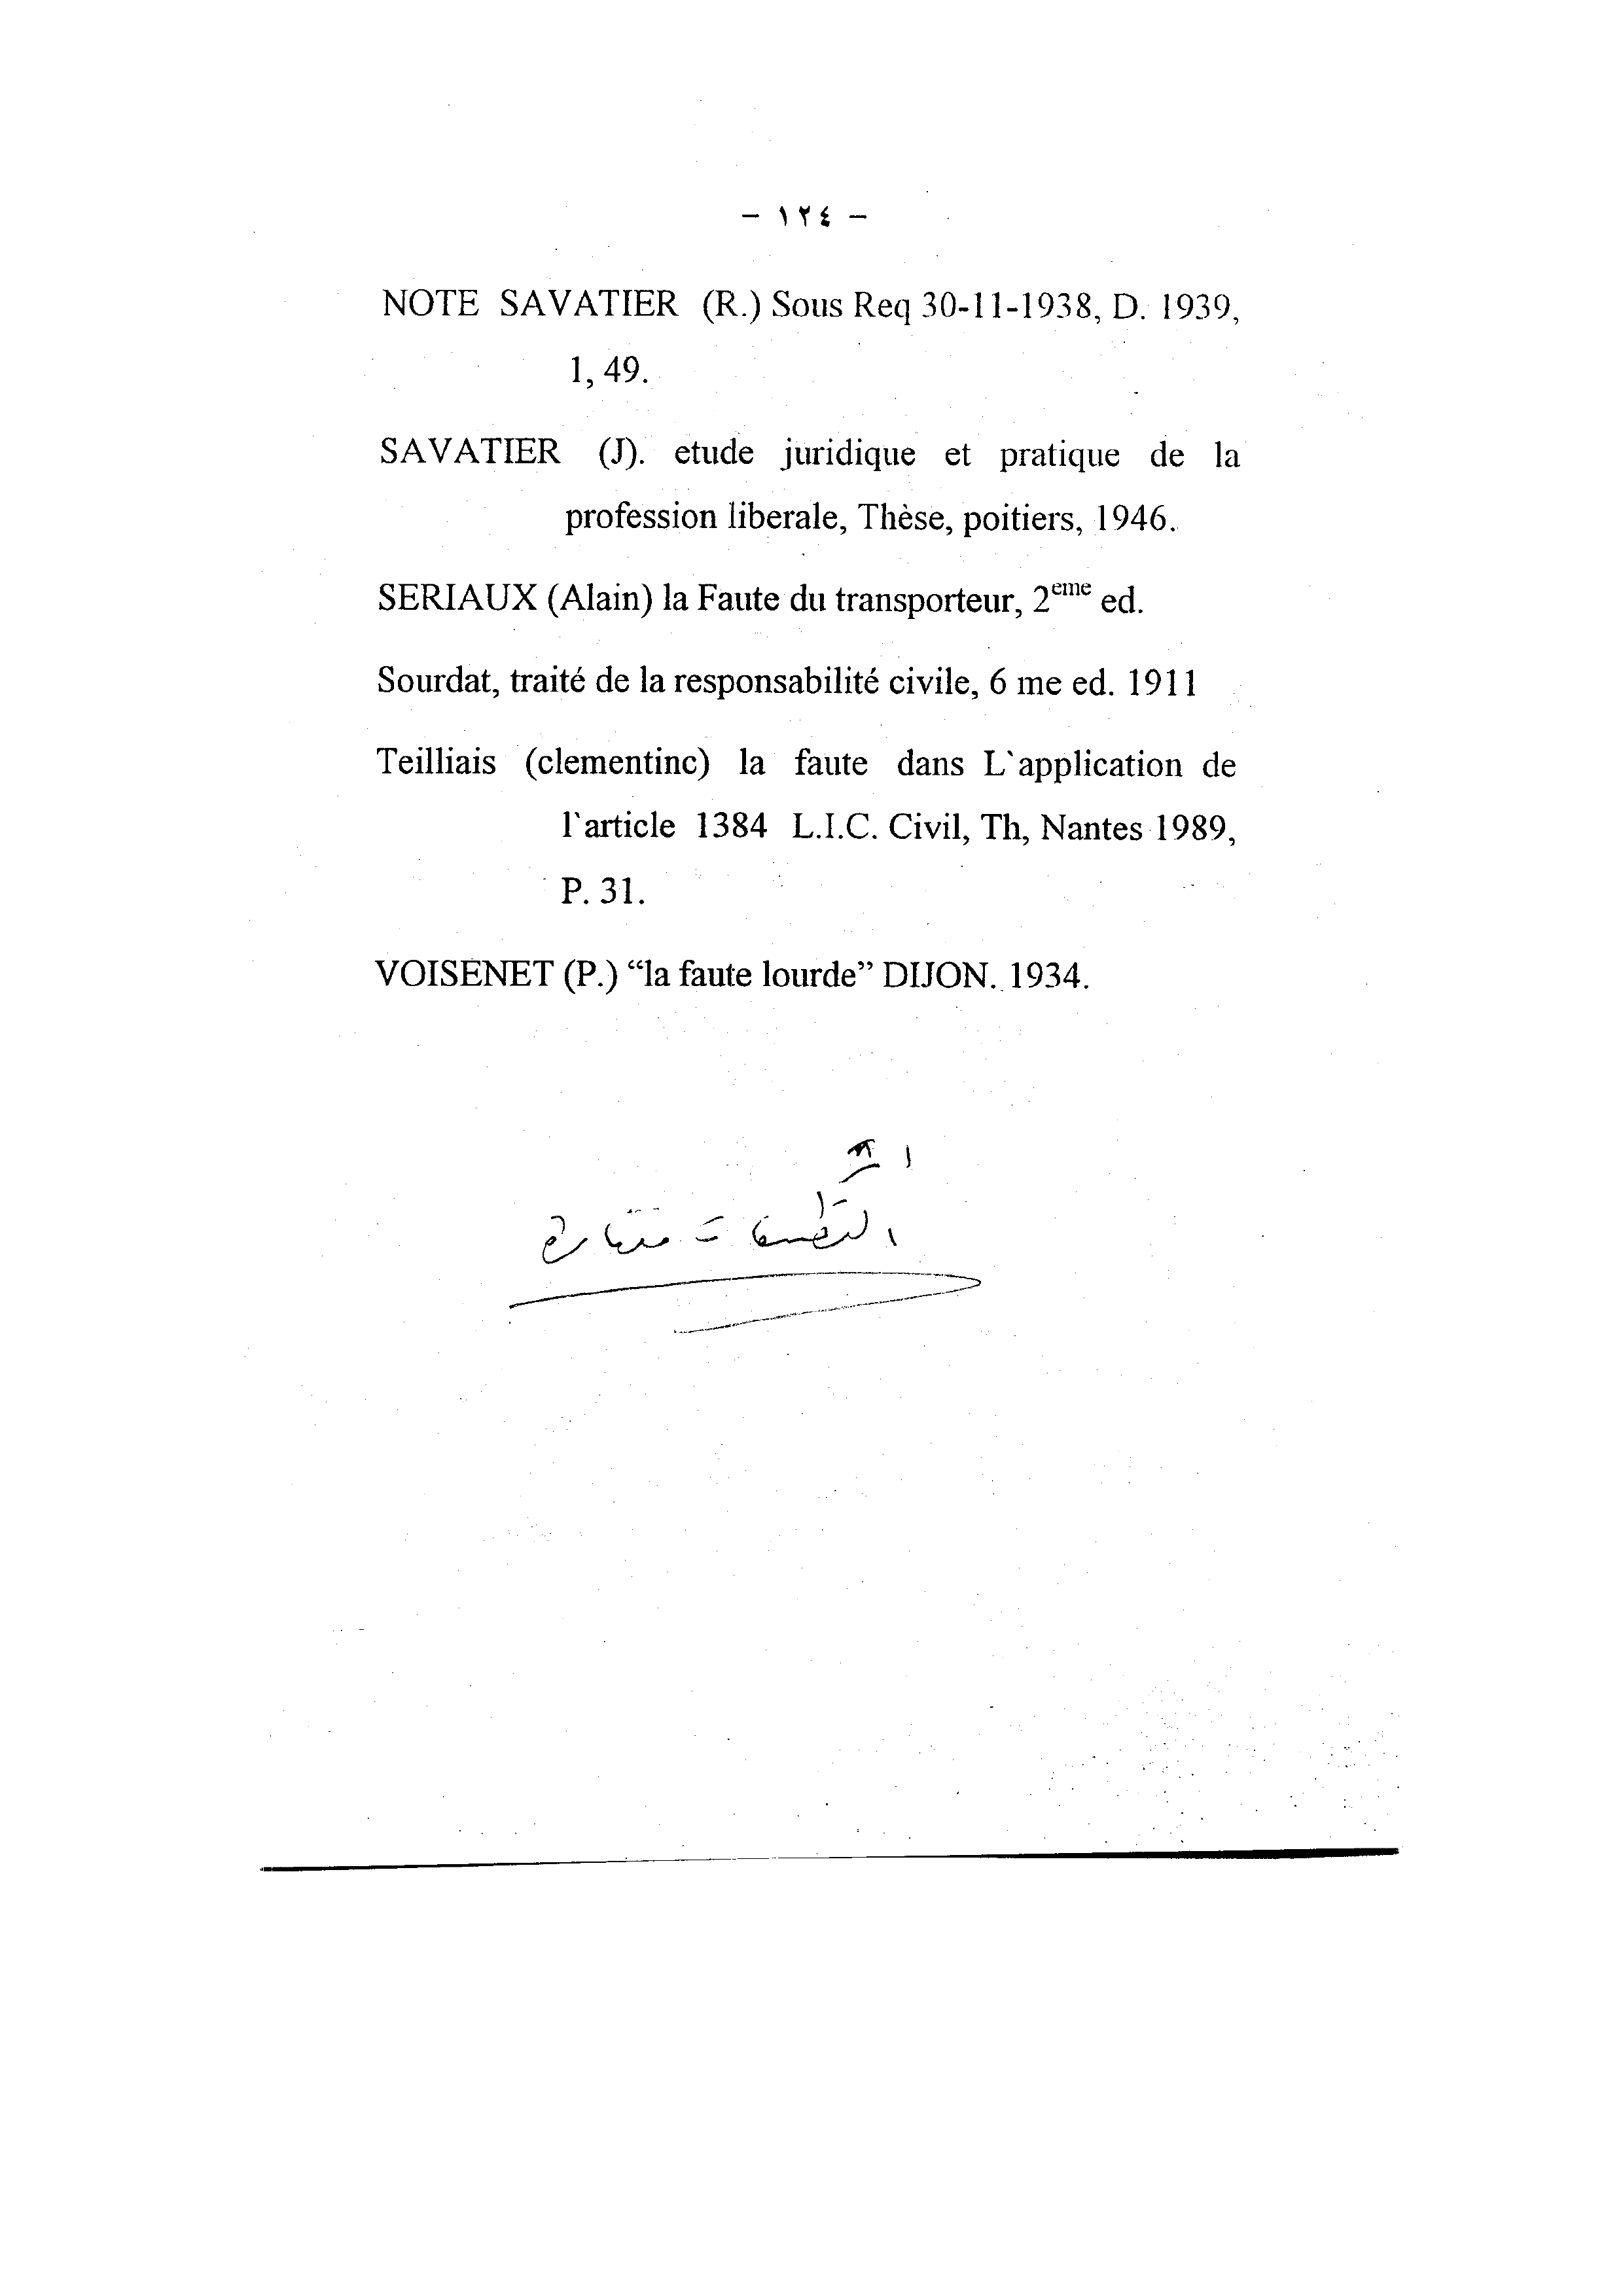 - ١٢٤ -
NOTE SAVATIER (R.) Sous Req 30-11-1938, D. 1939,
1, 49.
SAVATIER (J). etude juridique et pratique de la
profession liberale, Thèse, poitiers, 1946.
SERIAUX (Alain) la Faute du transporteur, 2eme ed.
Sourdat, traité de la responsabilité civile, 6 me ed. 1911
Teilliais (clementinc) la faute dans L`application de
l`article 1384 L.I.C. Civil, Th, Nantes 1989,
P. 31.
VOISENET (P.) “la faute lourde” DIJON. 1934.